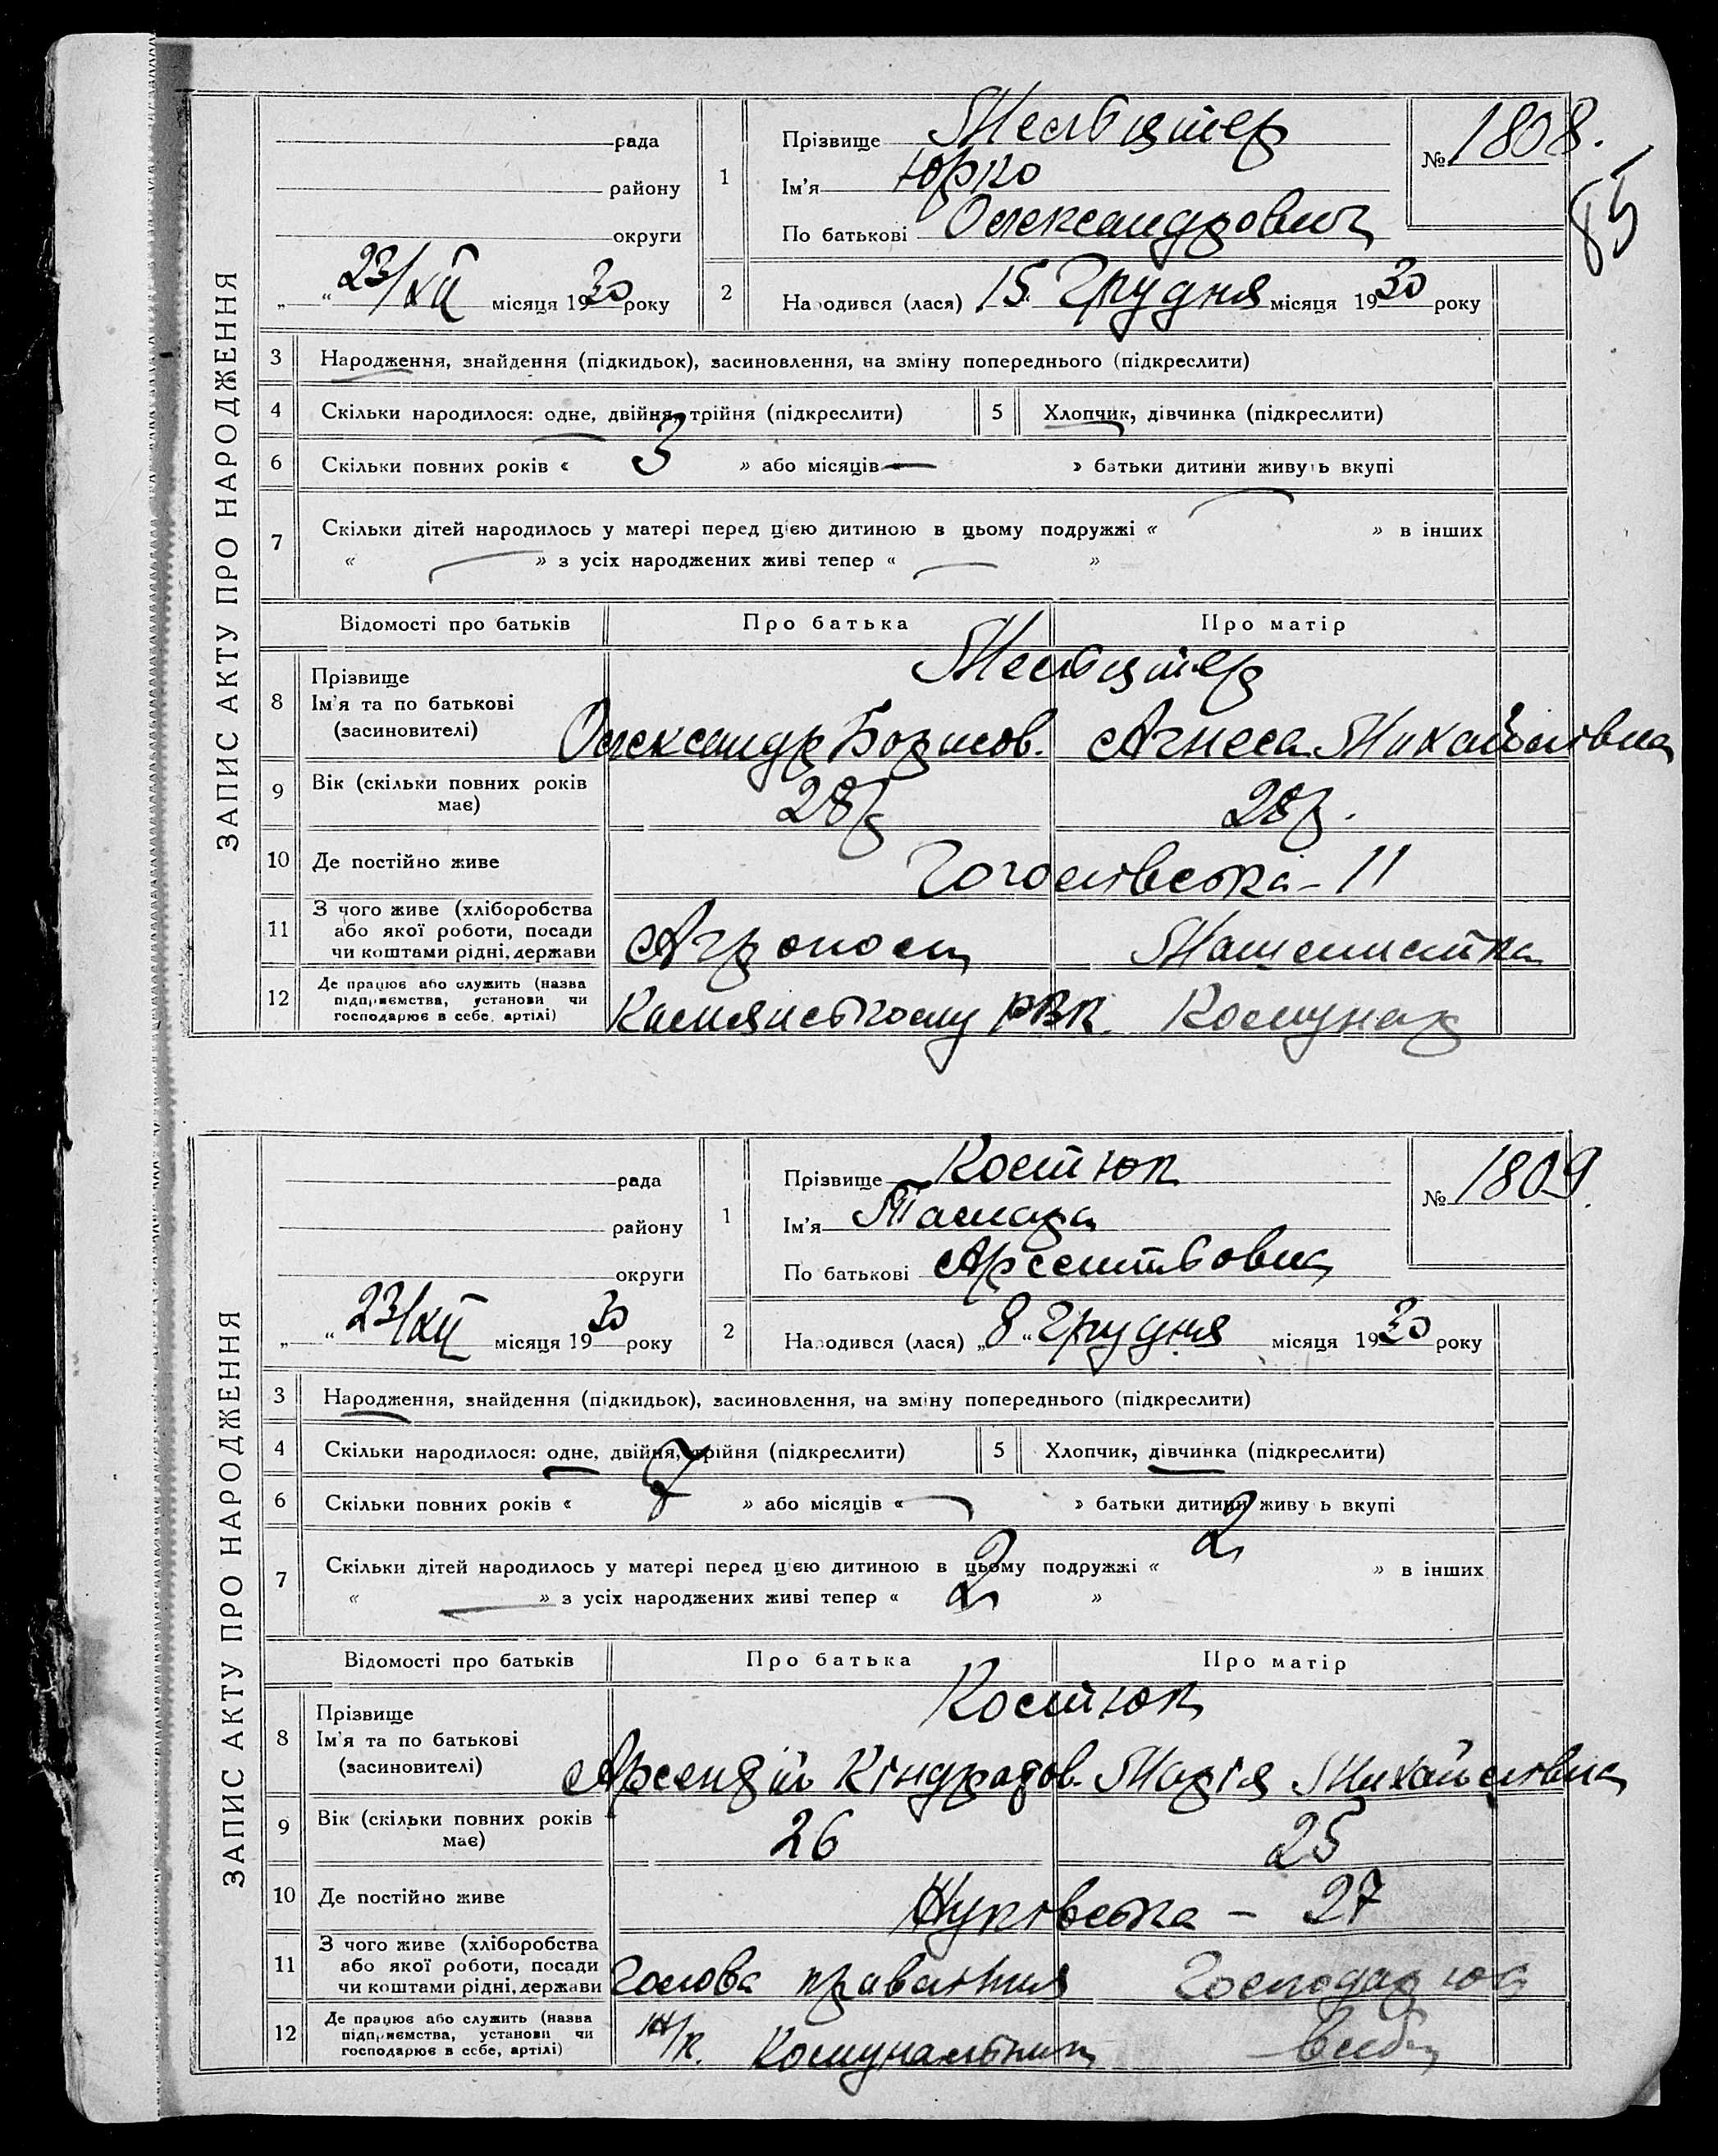 ЗАПИС АКТУ ПРО НАРОДЖЕННЯ
рада
району
округи
„ “ 23/XII місяця 1930 року
1
Прізвище Мельцтер
Ім'я Юрко
По батькові Олександрович
№ 1808.
85
2
Народився (лася) 15 Грудня місяця 1930 року
3 Народження, знайдення (підкидьок), засиновлення, на зміну попереднього (підкреслити)
4 Скільки народилося: одне, двійня, трійня (підкреслити)
5 Хлопчик, дівчинка (підкреслити)
6 Скільки повних років « 3 » або місяців — » батьки дитини живуть вкупі
7 Скільки дітей народилось у матері перед цією дитиною в цьому подружжі « — » в інших
« — » з усіх народжених живі тепер « — »
Відомості про батьків Про батька Про матір
8 Прізвище
Ім'я та по батькові
(засиновителі)
Мельцтер
Олександр Борисов. Агнеса Михайлівна
9 Вік (скільки повних років має)
28р 28р.
10 Де постійно живе
Гоголівська - 11
11 З чого живе (хліборобства
або якої роботи, посади
чи коштами рідні, держави
Агроном Машиністка
12 Де працює або служить (назва
підприємства, установи чи
господарює в себе, артілі)
РВК. Комунар
ЗАПИС АКТУ ПРО НАРОДЖЕННЯ
рада
району
округи
„ “ 23/XII місяця 1930 року
1
Прізвище Костюк
Ім'я Тамара
По батькові Арсентьовна
№ 1809.
2
Народився (лася) „8“ Грудня місяця 1930 року
3 Народження, знайдення (підкидьок), засиновлення, на зміну попереднього (підкреслити)
4 Скільки народилося: одне, двійня, трійня (підкреслити)
5 Хлопчик, дівчинка (підкреслити)
6 Скільки повних років « 7 » або місяців « — » батьки дитини живу ь вкупі
7 Скільки дітей народилось у матері перед цією дитиною в цьому подружжі « 2 » в інших
« — » з усіх народжених живі тепер « 2 »
Відомості про батьків Про батька Про матір
8 Прізвище
Ім'я та по батькові
(засиновителі)
Костюк
Арсентій Кіндратов. Марія Михайлівна
9 Вік (скільки повних років має)
26 25
10 Де постійно живе
- 27
11 З чого живе (хліборобства
або якої роботи, посади
чи коштами рідні, держави
Голова правління Господарює
12 Де працює або служить (назва
підприємства, установи чи
господарює в себе, артілі)
Комунальник